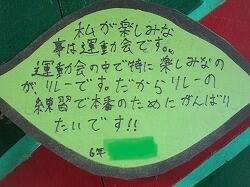 私が楽しみな
事は運動会です。
運動会の中で特に楽しみなの
が、リレーです。だからリレーの
練習で本番のためにがんばり
たいです!!
6年